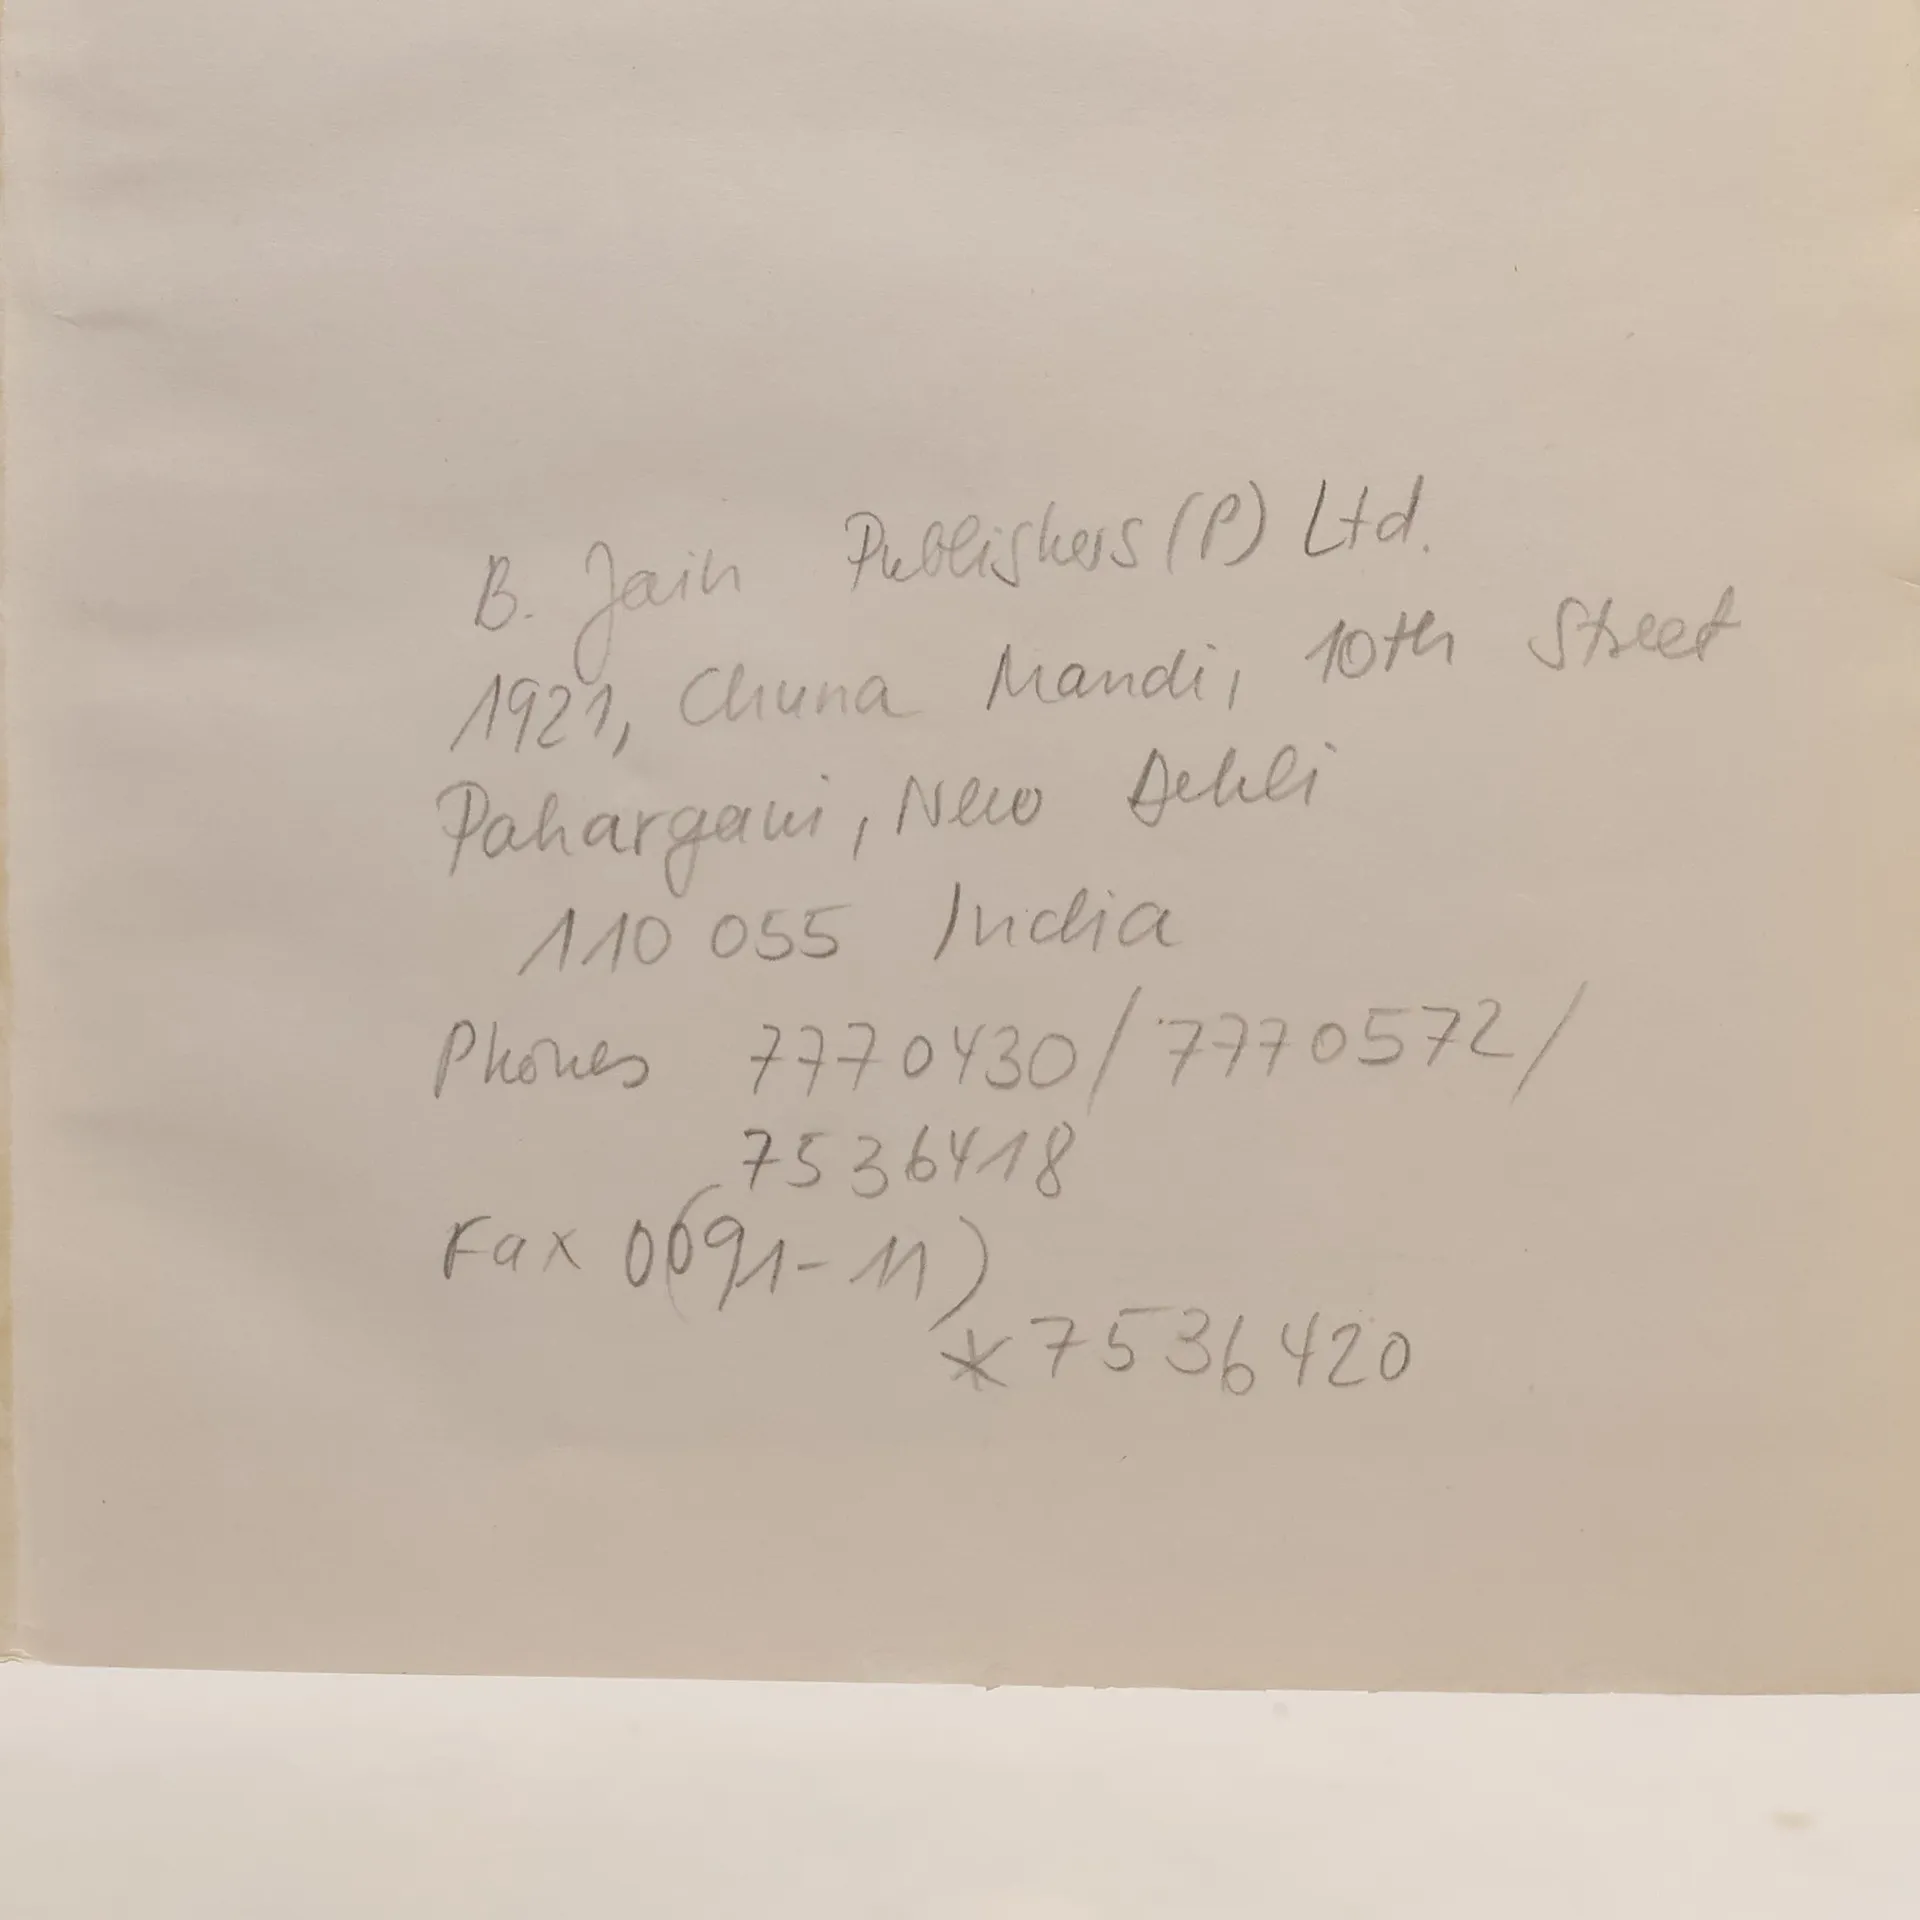 B. Jain Publishers (P) Ltd.
1921, Chuna Mandi, 10th Street
Pahargani, New Dehli
110 055 India
Phones 7770430/7770572/
7536418
Fax 0(091-11)
*7536420